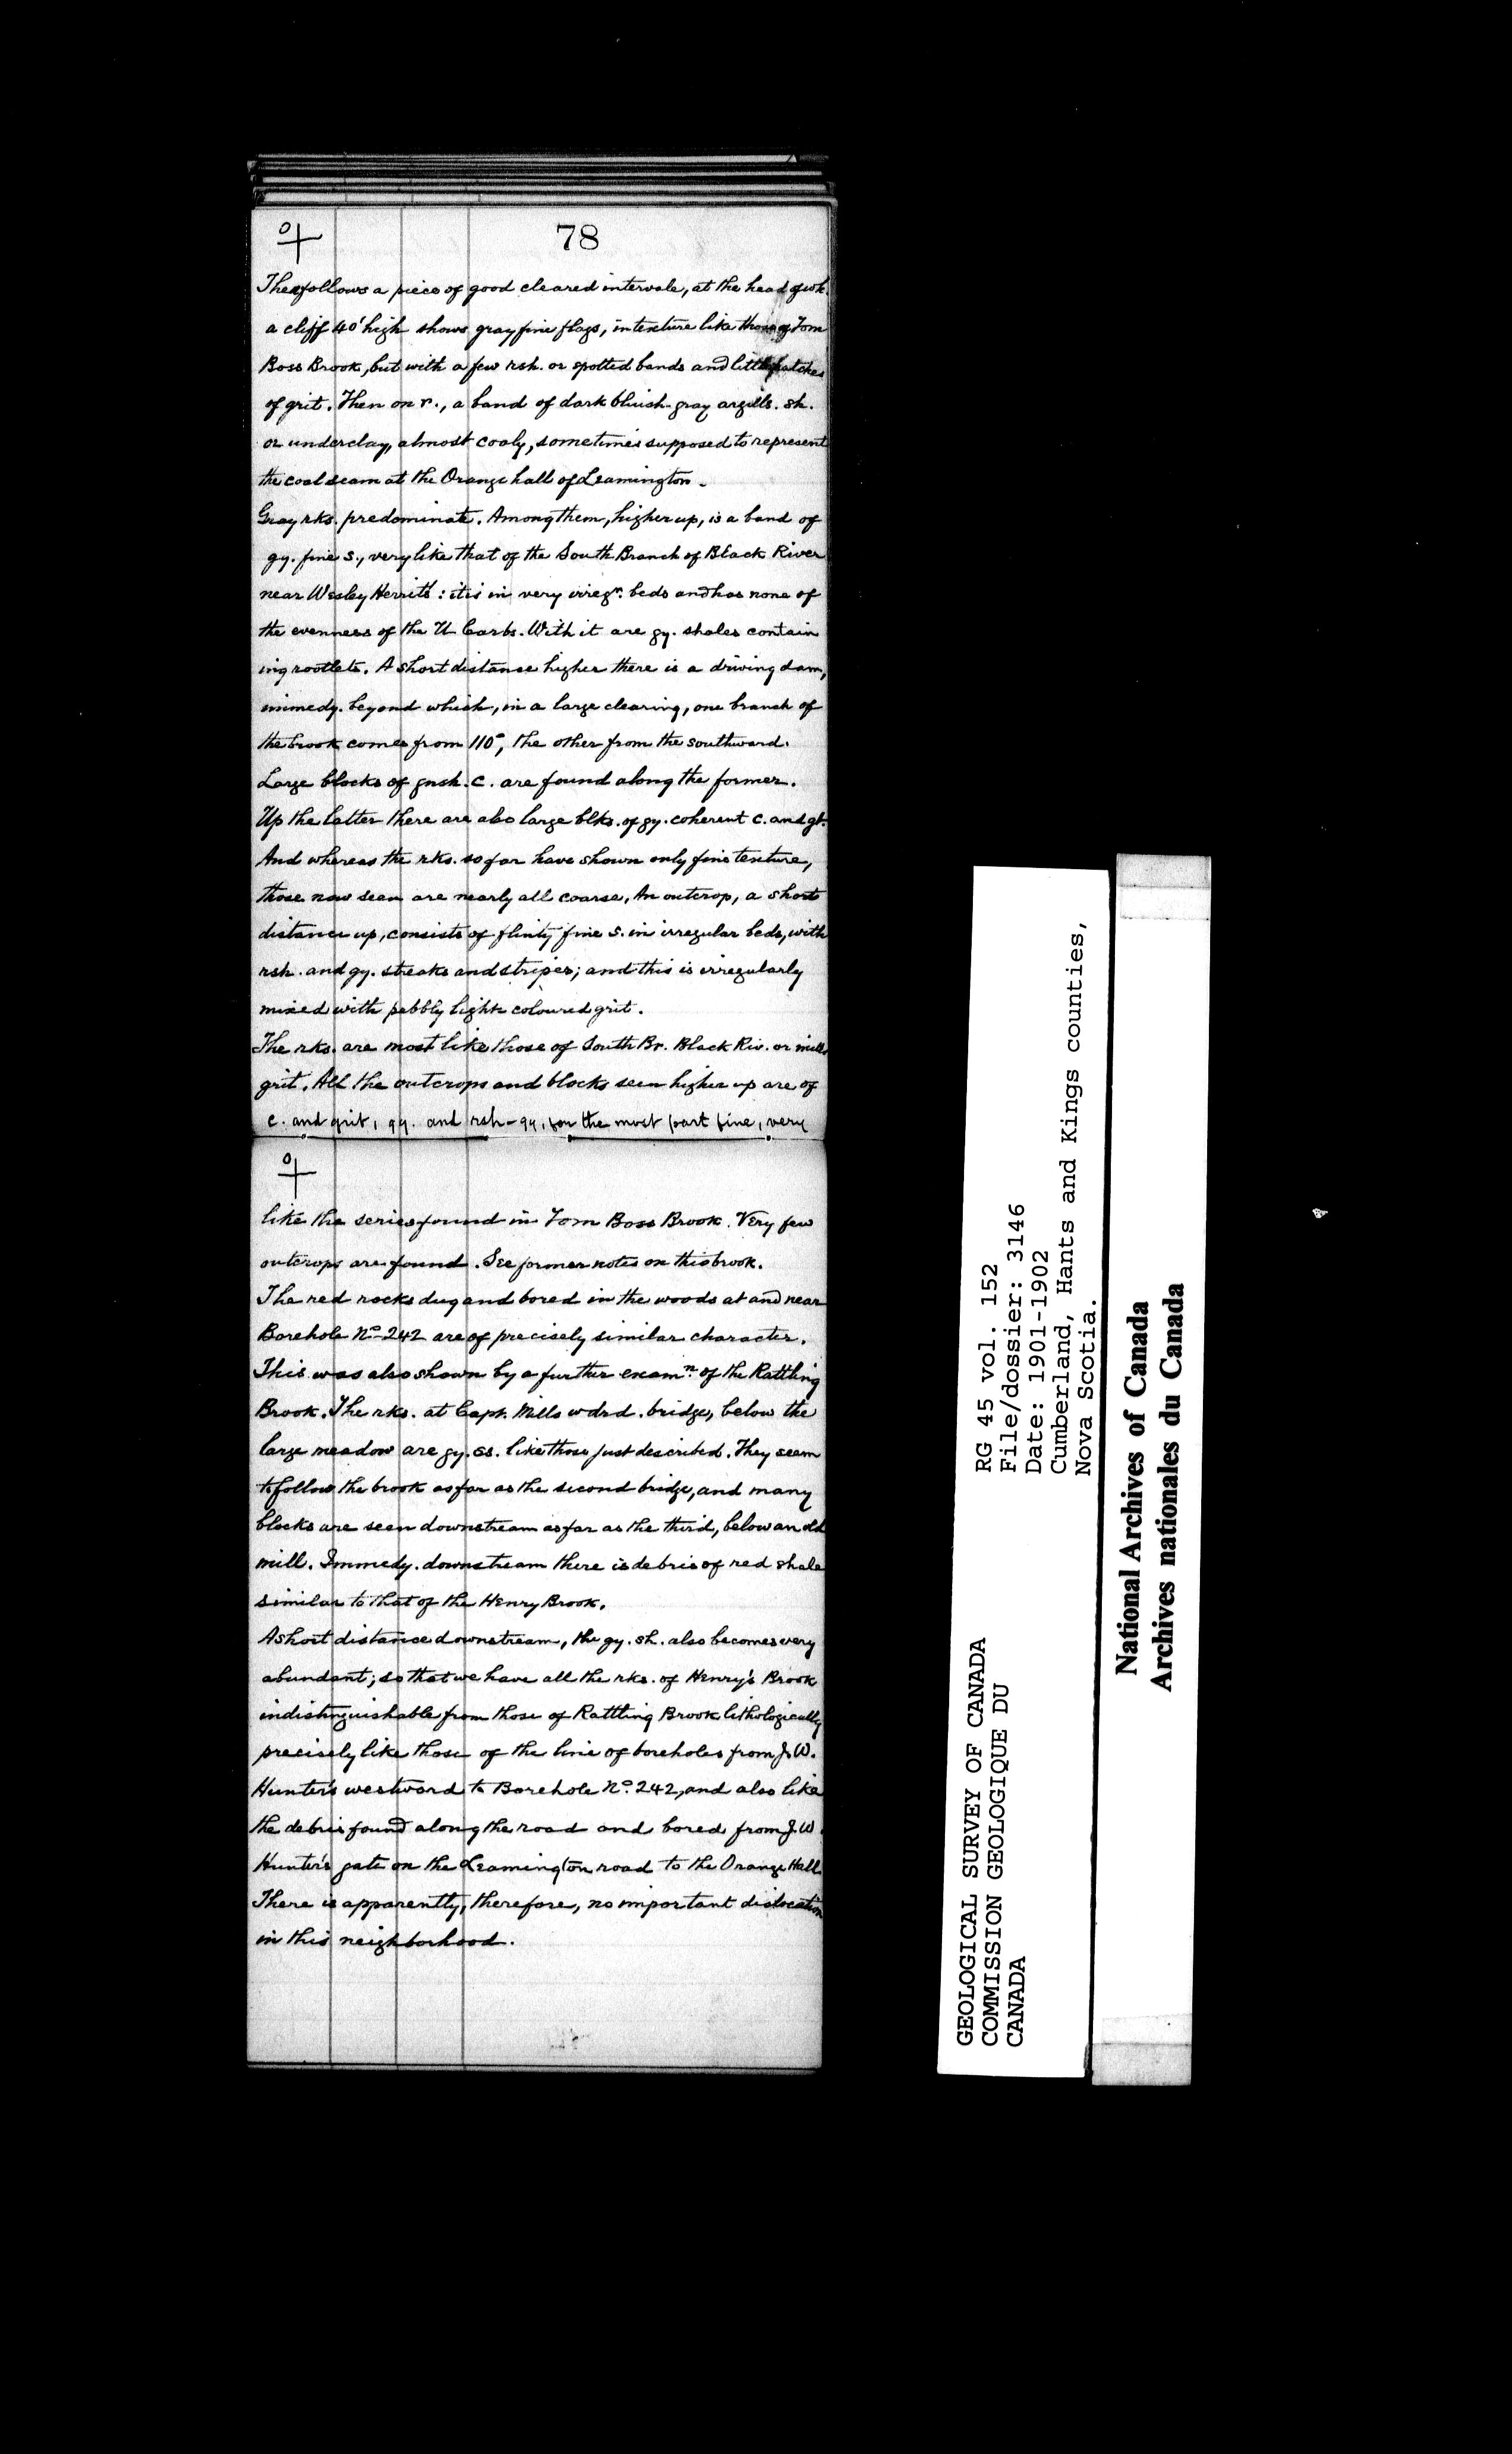 78
Then follows a piece of good cleared intervale, at the head of wh.
a cliff 40' high shows gray fine flags, in texture like those of Tom
Boss Brook, but with a few rsh. or spotted bands and little patches
of grit. Then on r., a band of dark bluish-gray argills. sh.
or underclay, almost coaly, sometimes supposed to represent
the coal seam at the Orange hall of Leamington.
Gray rks. predominate. Among them, higher up, is a band of
gy. fine s., very like that of the South Branch of Black River
near Wesley Herrits: it is in very irregr. beds and has none of
the evenness of the U Carbs. With it are gy. shales contain
ing rootlets. A short distance higher there is a driving dam,
immedy. beyond which, in a large clearing, one branch of
the brook comes from 110°, the other from the southward.
Large blocks of gnsh. c. are found along the former.
Up the latter there are also large blks. of gy. coherent c. and gt.
And whereas the rks. so far have shown only fine texture,
those now seen are nearly all coarse. An outcrop, a short
distance up, consists of flinty fine s. in irregular beds, with
rsh. and gy. streaks and stripes; and this is irregularly
mixed with pebbly light coloured grit.
The rks. are most like those of South Br. Black Riv. or mills.
grit. All the outcrops and blocks seen higher up are of
c. and grit, gy. and rsh-gy, for the most part fine, very
like the series found in Tom Boss Brook. Very few
outcrops are found. See former notes on this brook.
The red rocks dug and bored in the woods at and near
Borehole No. 242 are of precisely similar character.
This was also shown by a further examn. of the Rattling
Brook. The rks. at Capt. Mills wdrd. bridge, below the
large meadow are gy. ss. like those just described. They seem
to follow the brook as far as the second bridge, and many
blocks are seen downstream as far as the third, below an old
mill. Immedy. downstream there is debris of red shale
similar to that of the Henry Brook.
A short distance downstream, the gy. sh. also becomes very
abundant; so that we have all the rks. of Henry's Brook
indistinguishable from those of Rattling Brook lithologically
precisely like those of the line of boreholes from J. W.
Hunter's westward to Borehole No. 242, and also like
the debris found along the road and bored from J. W.
Hunter's gate on the Leamington road to the Orange Hall.
There is apparently, therefore, no important dislocation
in this neighborhood.
GEOLOGICAL SURVEY OF CANADA
COMMISSION GEOLOGIQUE DU
CANADA
RG 45 vol. 152
File/dossier: 3146
Date: 1901-1902
Cumberland, Hants and Kings counties,
Nova Scotia.
National Archives of Canada
Archives nationales du Canada